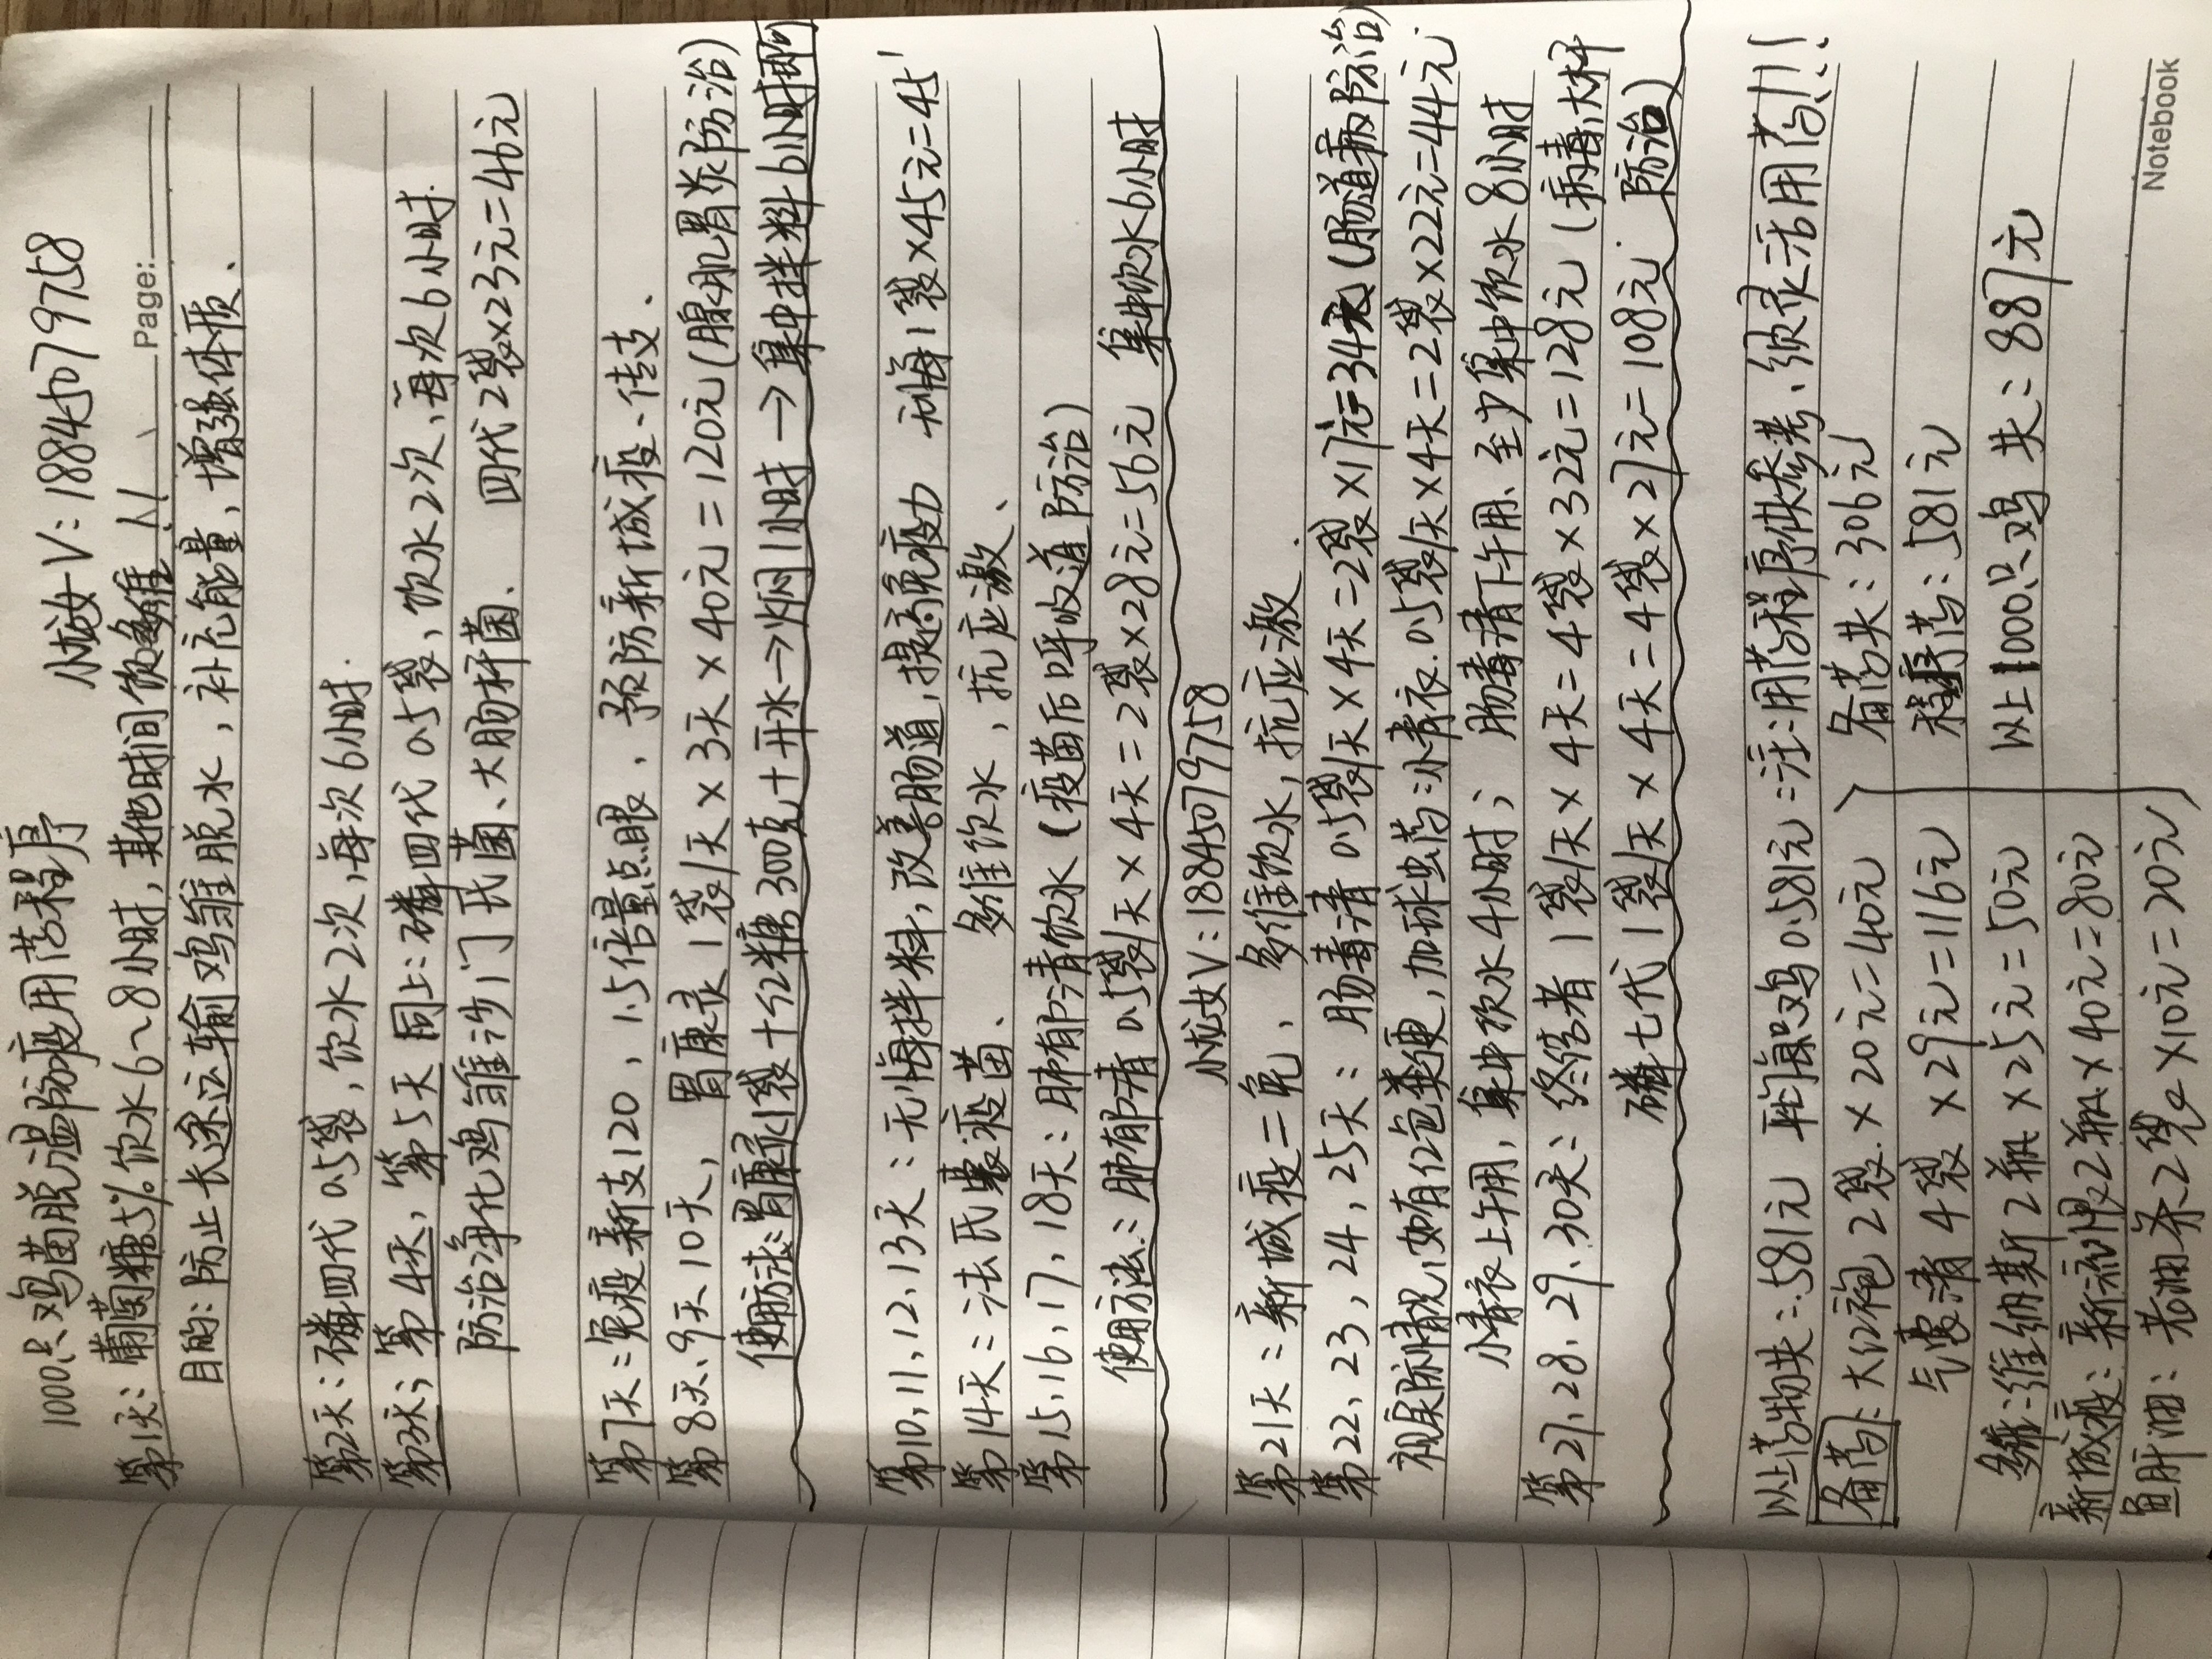 1000只鸡苗脱温防疫用药程序 小龙女V:18845079758
Page:
第1天:葡萄糖5%饮水6~8小时,其他时间饮多维!!
目的:防止长途运输鸡雏脱水,补充能量,增强体质、
第2天:磷四代0.5袋,饮水2次,每次6小时.
第3天;第4天,第5天 同上:磷四代0.5袋,饮水2次、每次6小时.
防治净化鸡雏沙门氏菌、大肠杆菌. 四代2袋×23元=46元
第7天:免疫新支120,1.5倍量点眼.预防新城疫、传支、
第8天、9天、10天, 胃康灵1袋/天×3天×40元=120元(腺肌胃炎防治)
使用方法:胃康灵1袋+红糖300克+开水→焖1小时→集中拌料6小时即
第10,11,12,13天:无悔拌料,改善肠道,提高免疫力 无悔1袋×45元=45
第14天:法氏囊疫苗、 多维饮水,抗应激、
第15,16,17,18天:肺有护清饮水(疫苗后呼吸道防治)
使用方法:肺有护清0.5袋/天×4天=2袋×28元=56元 集中饮水6小时
小龙女V:18845079758
第21天:新城疫二免、 多维饮水,抗应激.
第22,23,24,25天:肠毒清0.5袋/天×4天=2袋×17元=34元(肠道病防治)
视尿肠情况,如有红包粪便,加球虫药:小青衣.0.5袋/天×4天=2袋×22元=44元.
小青衣上午用,集中饮水4小时; 肠毒清下午用、至少集中饮水8小时
第27.28.29.30天:终结者1袋/天×4天=4袋×32元=128元(病毒、大杆
磷七代1袋/天×4天=4袋×27元=108元. 防治)
以上药物共:581元 平均每只鸡0.581元:注:用药程序供参考、须灵活用药!!!
备药: 大红袍2袋×20元=40元 备药共:306元
气囊清4袋×29元=116元 程序药:581元
多维:维纳斯2瓶×25元=50元 以上1000只鸡 共:887元
新城疫:新流2瓶×40元=80元
鱼肝油:老油条2袋×10元=20元
Notebook